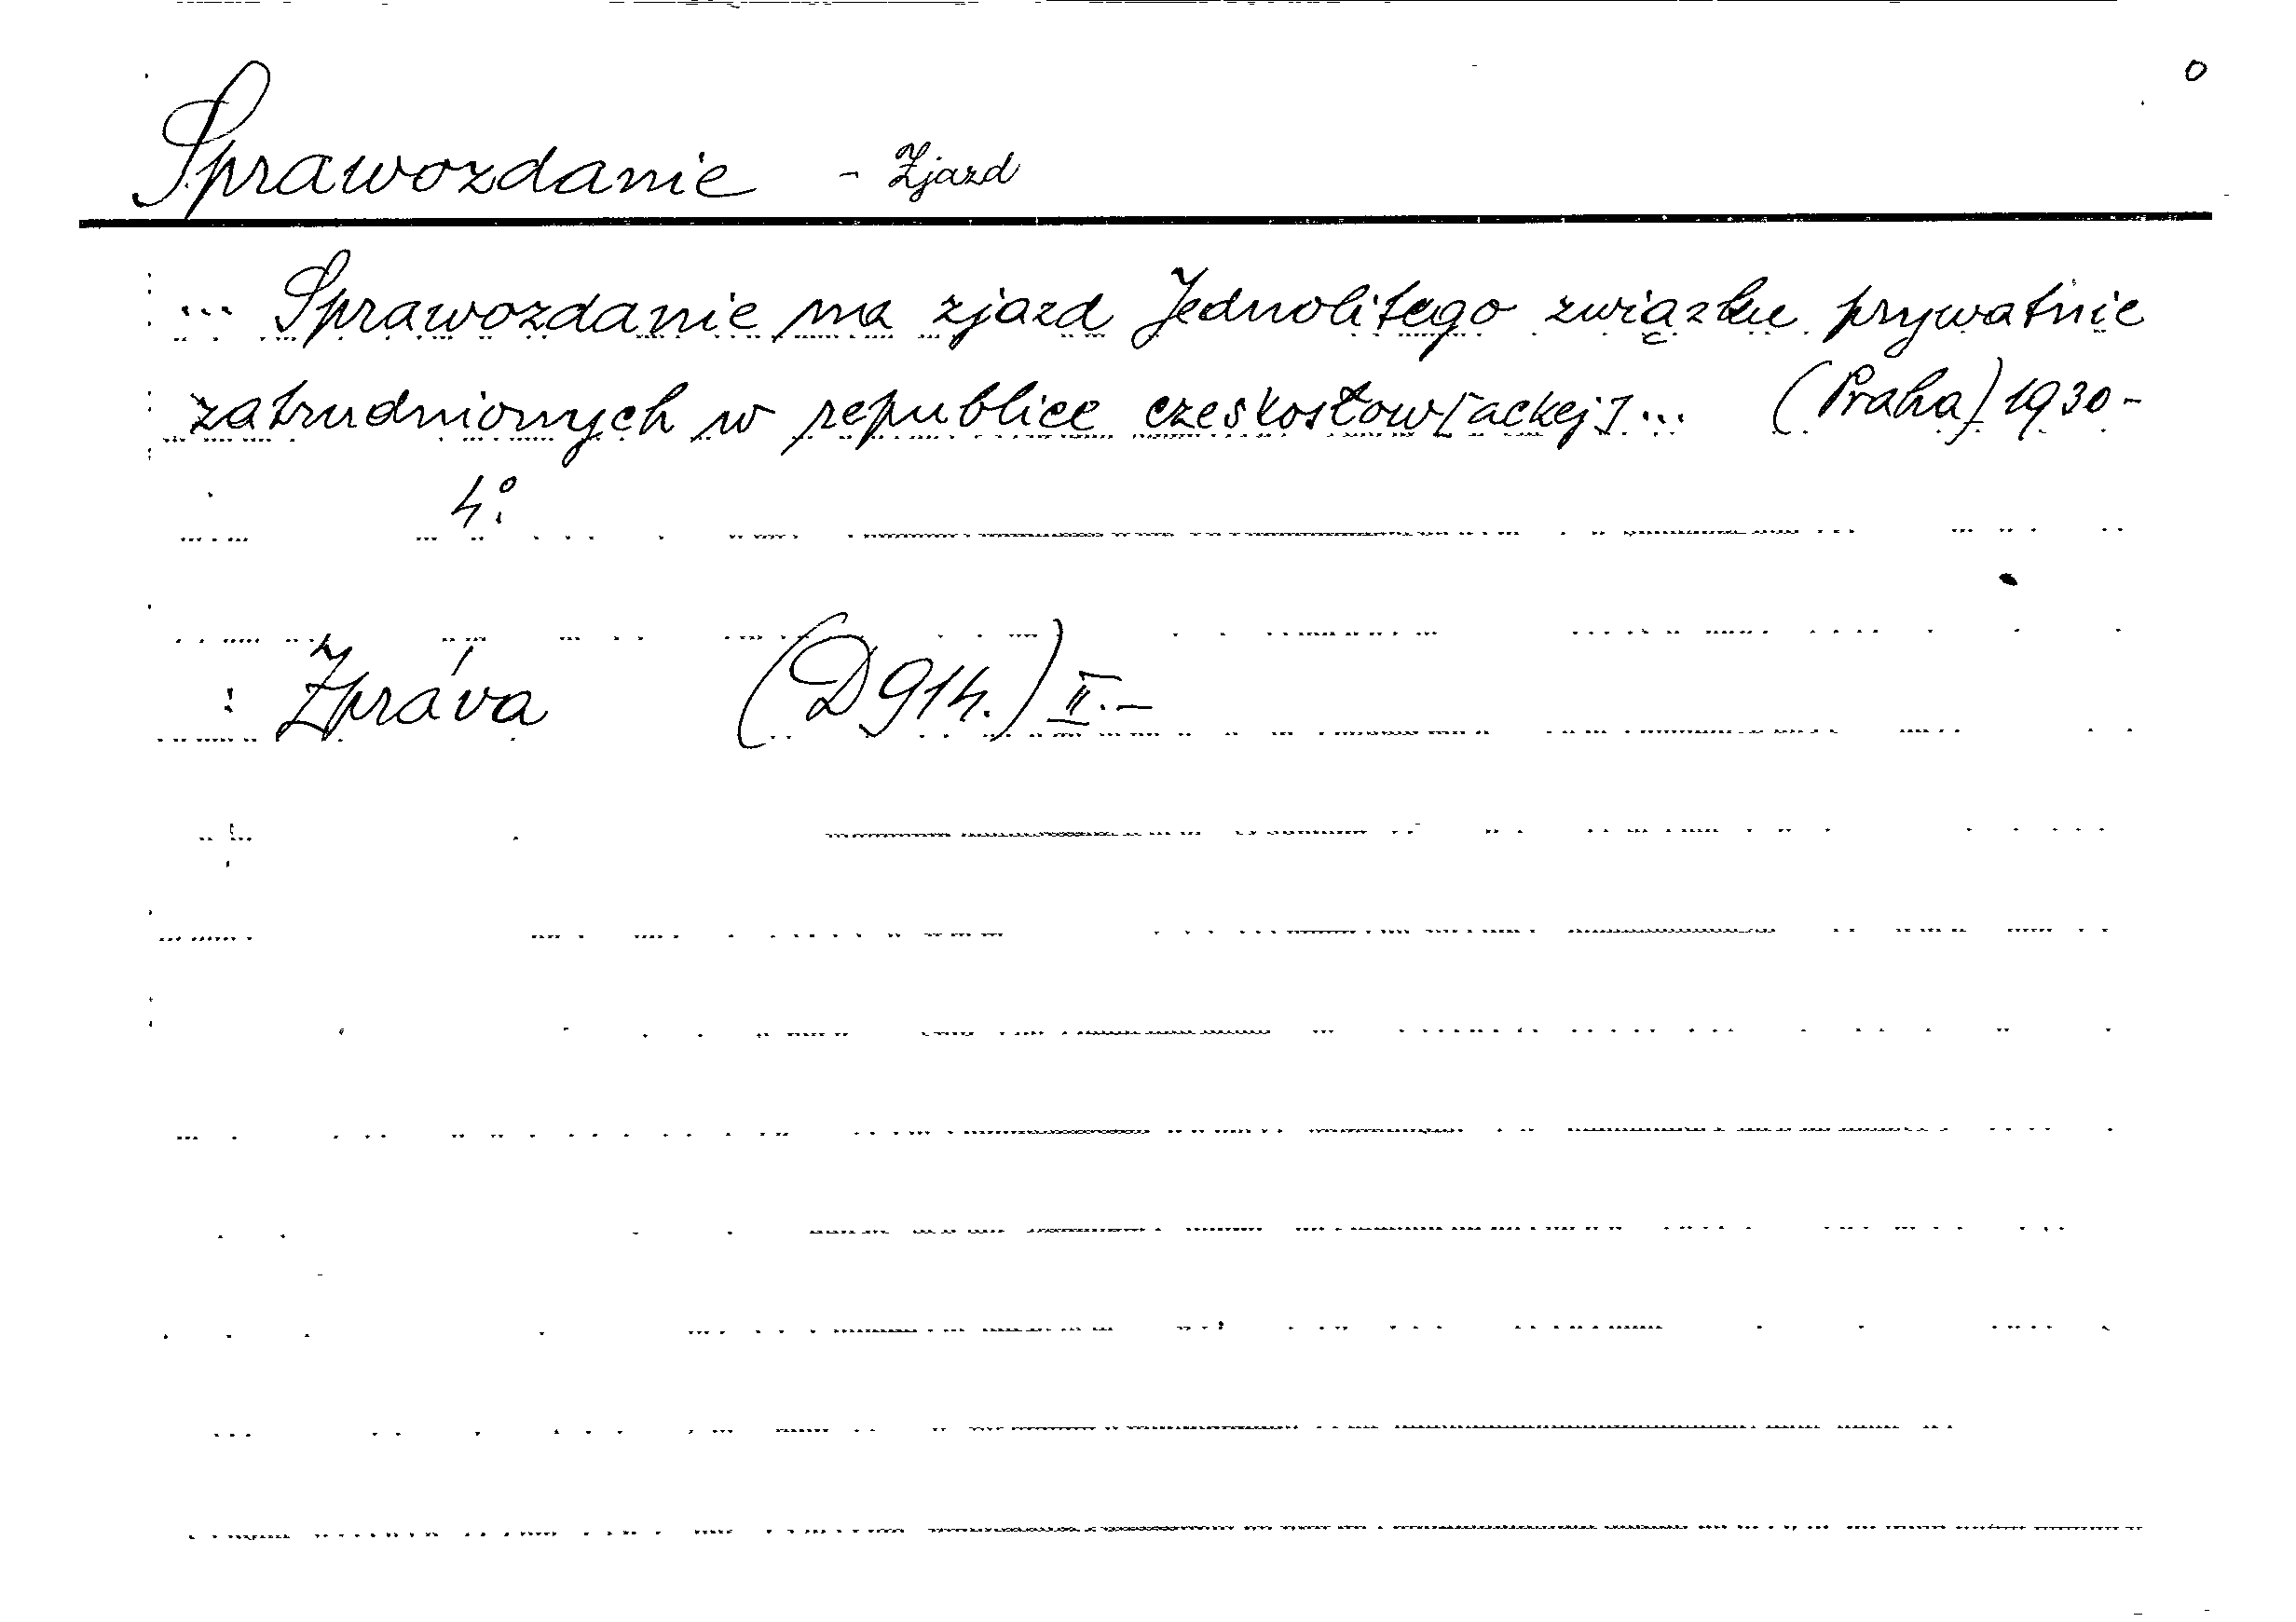 o
Sprawozdanie - Zjazd
... Sprawozdanie na zjazd Jednolitego związku prywatnie
zatrudnionych w republice czeskosłow[ackej]... (Praha) 1930-
4°.
Zpráva (D 914.) II.-